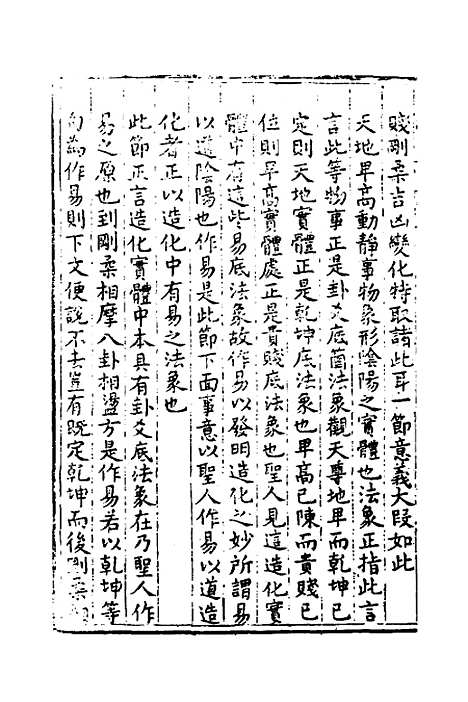 賤剛柔吉凶變化特取諸此耳一節意義大段如此
天地卑高動靜事物象形陰陽之實體也法象正指此言
言此等物事正是卦爻底箇法象觀天尊地卑而乾坤已
定則天地實體正是乾坤底法象也卑高已陳而貴賤已
位則卑高實體處正是貴賤底法象也聖人見這造化實
體中有這些易底法象故作易以發明造化之妙所謂易
以道陰陽也作易是此節下面事意以聖人作易以道造
化者正以造化中有易之法象也
此節正言造化實體中本具有卦爻底法象在乃聖人作
易之原也到剛柔相摩八卦相盪方是作易若以乾坤等
句為作易則下文便說不去豈有既定乾坤而後剛柔